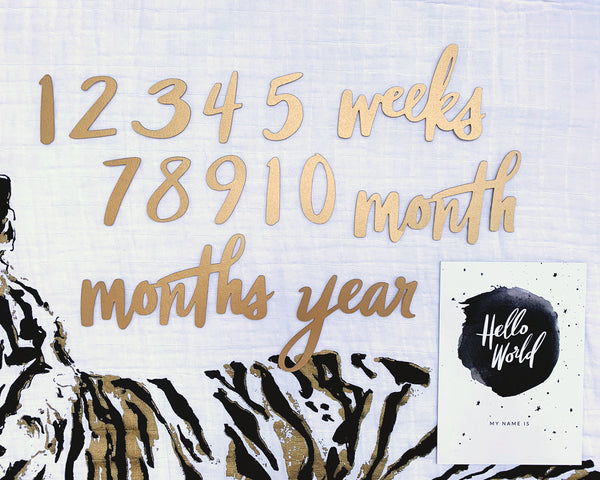 1 2 3 4 5 weeks
7 8 9 10 month
months year
Hello
World
MY NAME IS